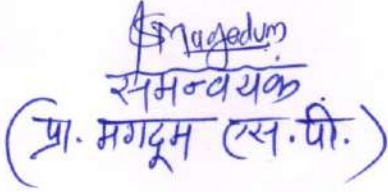 SMagedum
समन्वयक
(प्रा. मगदूम एस. पी.)